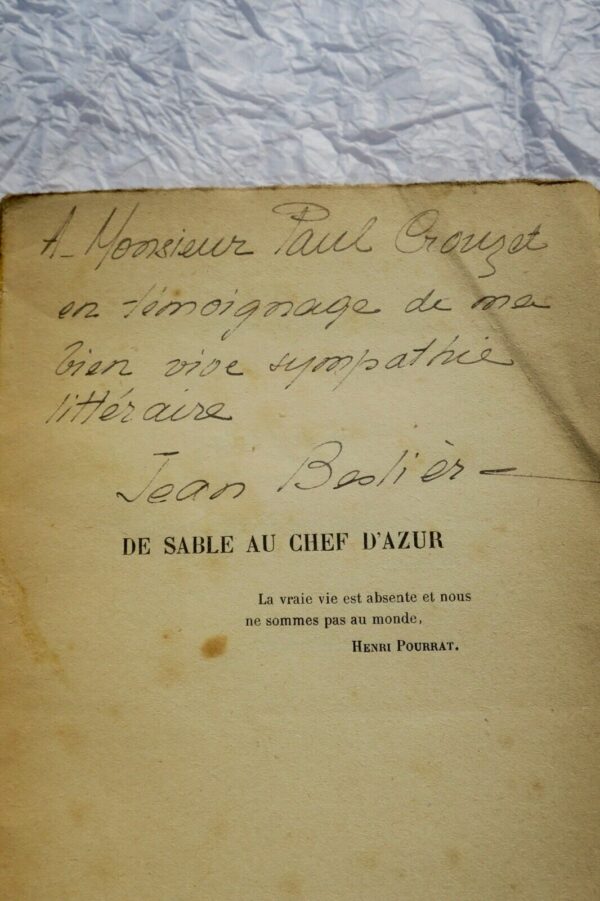 A- Monsieur Paul Crouzet
en témoignage de ma
bien vive sympathie
littéraire
Jean Beslièr
DE SABLE AU CHEF D'AZUR
La vraie vie est absente et nous
ne sommes pas au monde,
HENRI POURRAT.